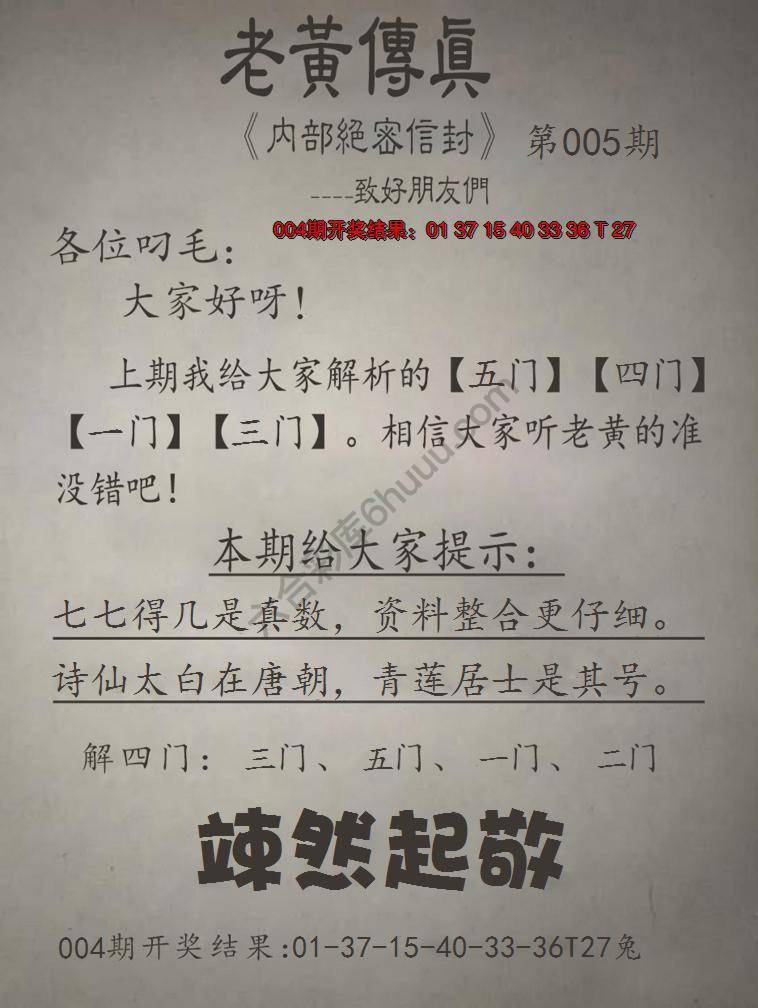 老黃傳真
《内部絕密信封》 第005期
----致好朋友們
004期开奖结果：01 37 15 40 33 36 T 27
各位叼毛：
大家好呀！
上期我给大家解析的【五门】【四门】
【一门】【三门】。相信大家听老黄的准
没错吧！
本期给大家提示：
七七得几是真数，资料整合更仔细。
诗仙太白在唐朝，青莲居士是其号。
解四门：三门、五门、一门、二门
竦然起敬
004期开奖结果:01-37-15-40-33-36T27兔
六合彩库6huuu.com